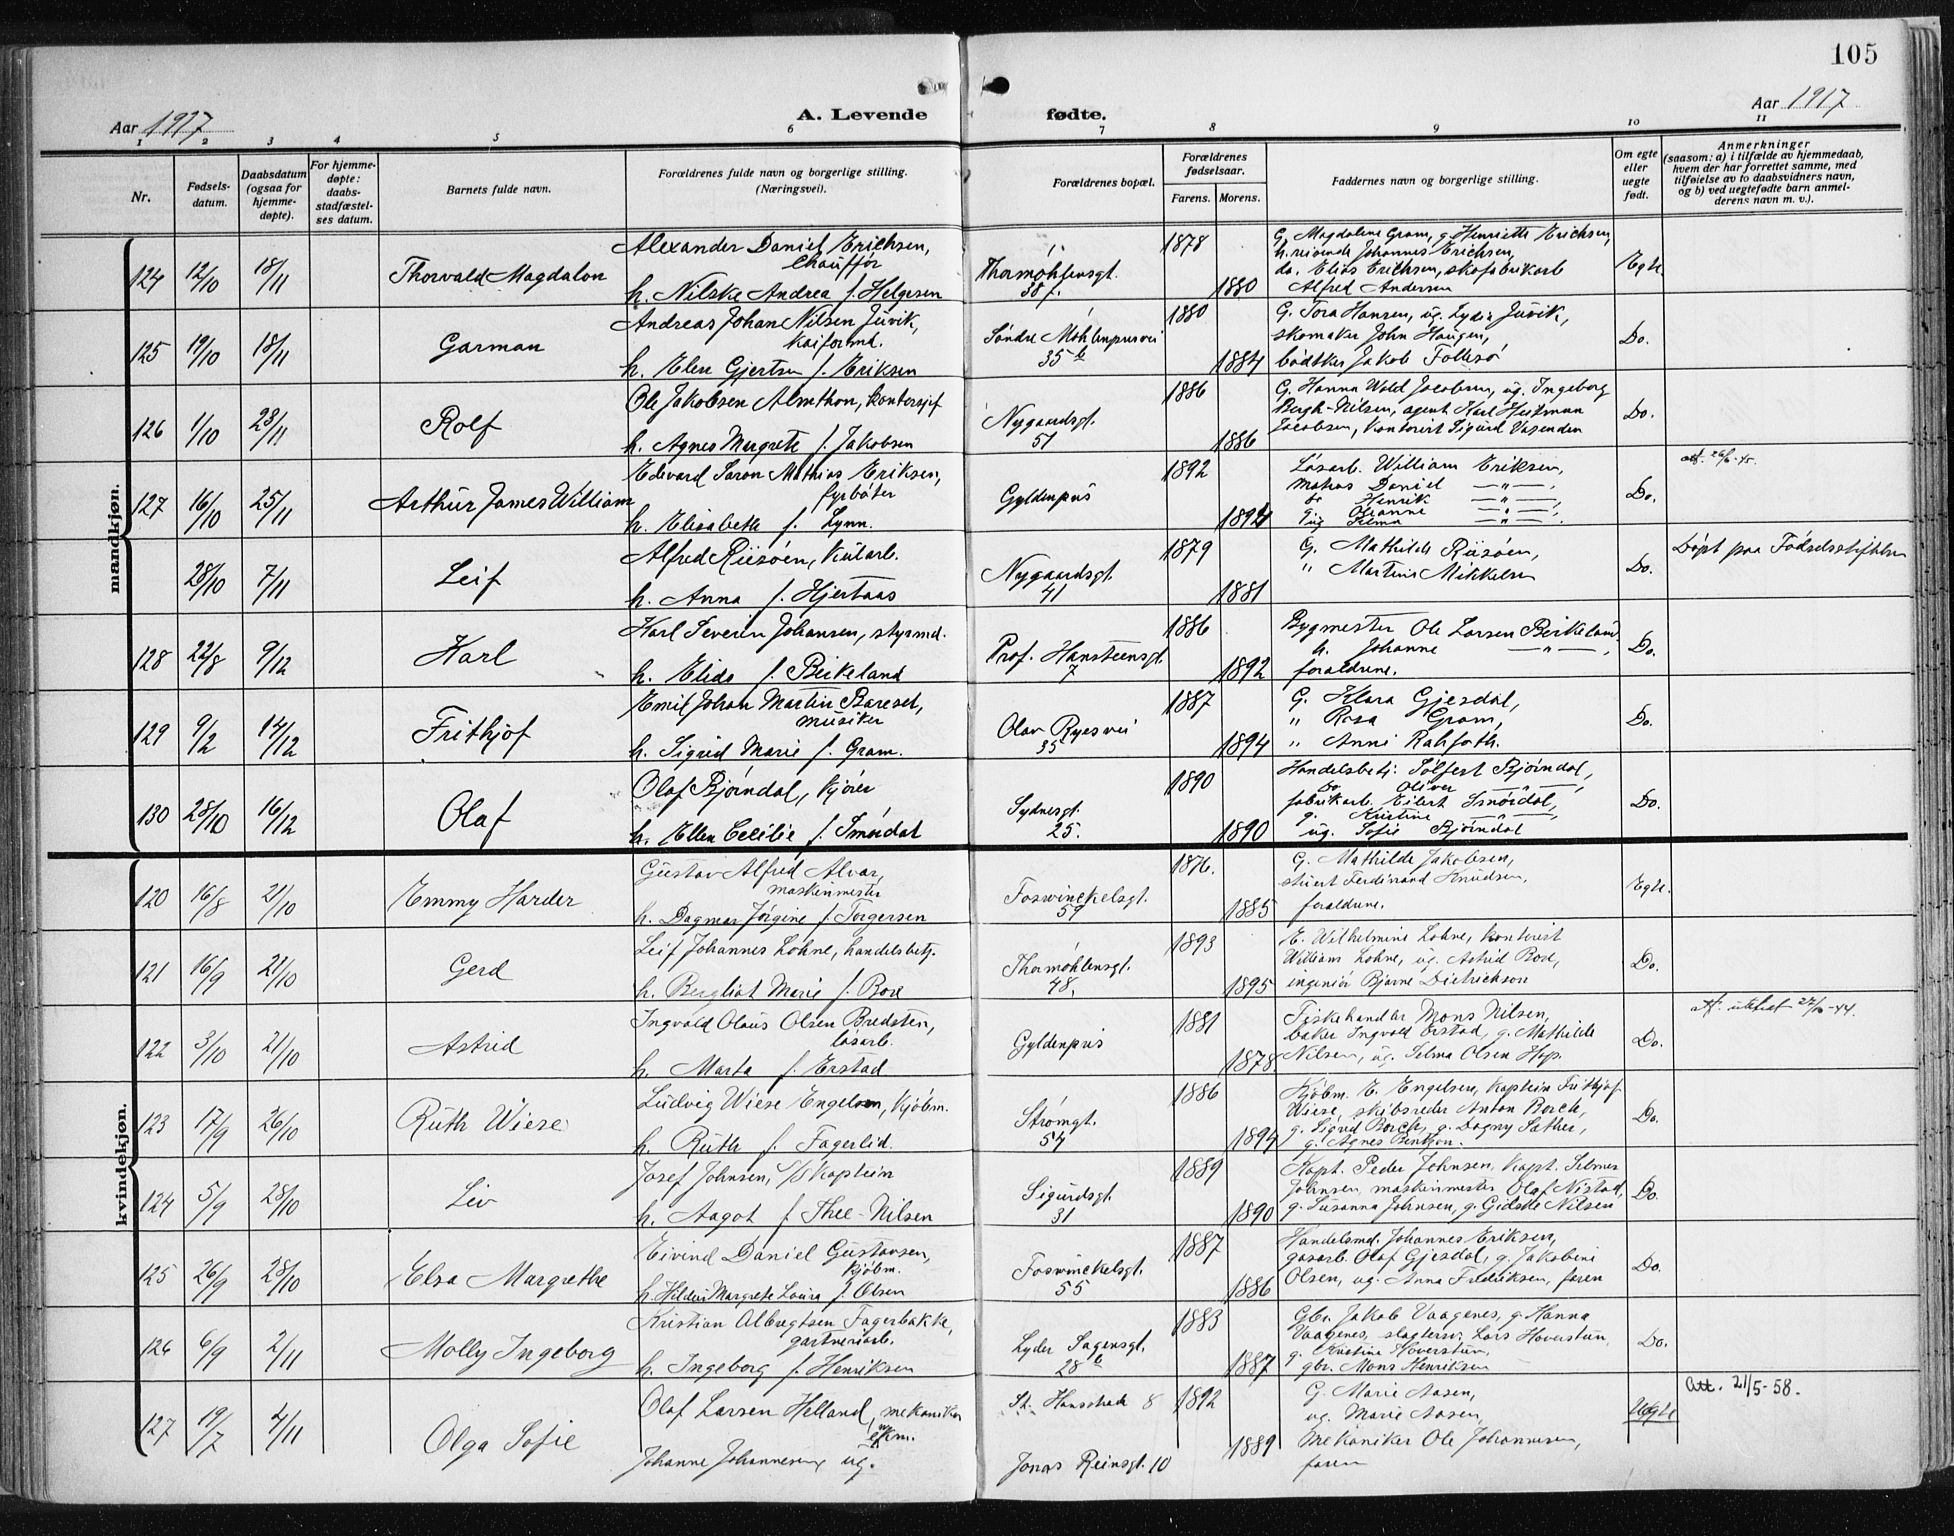 105
Aar 1917
A. Levende fødte.
Aar 1917
1 2 3 4 5 6 7 8 9 10 11
Nr.
Fødsels-
datum.
Daabsdatum
(ogsaa for
hjemme-
døpte).
For hjemme-
døpte:
daabs-
stadfæstel-
ses datum.
Barnets fulde navn.
Forældrenes fulde navn og borgerlige stilling.
(Næringsvei).
Forældrenes bopæl.
Forældrenes
fødselsaar.
Farens. Morens.
Faddernes navn og borgerlige stilling.
Om egte
eller
uegte
født.
Anmerkninger
(saasom: a) i tilfælde av hjemmedaab,
hvem der har forrettet samme, med
tilføielse av to daabsvidners navn,
og b) ved uegtefødte barn anmel-
derens navn m. v.).
mandkjøn.
124 12/10 18/11 Thorvald Magdalon
Alexander Daniel Erichsen,
chauffør
h. Nilske Andrea f. Helgesen
Thormøhlensgt.
38
1878 1880
G. Magdalene Gram, g. Henriette Erichsen,
Johannes Erichsen,
do. Elias Erichsen, skofabrikarb
Alfred Andersen
Egte.
125 19/10 18/11 Garman
Andreas Johan Nilsen Juvik,
kaiformd.
h. Elen Gjertsen f. Eriksen
Søndre Møhlenprisvei
35 b
1880 1884
G. Tora Hansen, ug. Lydia Juvik,
skomaker John Haugen,
bødtker Jakob Follesø
Do.
126 1/10 23/11 Rolf
Ole Jakobsen Almthon, kontorsjef
h. Agnes Margrete f. Jakobsen
Nygaardsgt.
51
1886 1886
G. Hanna Wold Jacobsen, ug. Ingeborg
Bergh-Nilsen, agent Karl Heitman
Jacobsen, kontorist Sigurd Vasenden
Do.
127 16/10 25/11 Arthur James William
Edvard Saron Mathias Eriksen,
fyrbøter
h. Elisabeth f. Lynn.
Gyldenpris
1892 1894
Løsarb. William Eriksen,
Matros Daniel —"—,
do Henrik —"—,
g. Oleanne —"—,
ug. Selma —"—.
Do.
28/10 7/11 Leif
Alfred Riisøen, kularb.
h. Anna f. Hjertaas
Nygaardsgt.
41
1879 1881
G. Mathilde Riisøen,
" Martine Mikkelsen
Do.
Døpt paa Fødselsstiftelsen
128 22/8 9/12 Karl
Karl Severin Johansen, styrmd.
h. Elida f. Birkeland
Prof. Hansteensgt.
7
1886 1892
Bygmester Ole Larsen Birkeland,
h. Johanne —"—,
forældrene.
Do.
129 9/2 14/12 Frithjof
Emil Johan Martin Bareset,
musiker
h. Sigrid Marie f. Gram.
Olav Ryesvei
35
1887 1894
G. Klara Gjesdal,
" Rosa Gram,
" Anni Rahforth.
Do.
130 28/10 16/12 Olaf
Olaf Bjørndal, kjører
h. Ellen Cecilie f. Smørdal
Sydnesgt.
25.
1890 1890
Handelsbetj. Solfest Bjørndal,
do Oliver —"—,
fabrikarb. Eilert Smørdal,
g. Kristine —"—,
ug. Sofie Bjørndal
Do.
kvindekjøn.
120 16/8 21/10 Emmy Harder
Gustav Alfred Alvar,
maskinmester
h. Dagmar Jørgine f. Torgersen
Fosswinckelsgt.
59
1876. 1885
G. Mathilde Jakobsen,
stuert Ferdinand Knudsen,
forældrene.
Egte.
121 16/9 21/10 Gerd
Leif Johannes Lohne, handelsbetj.
h. Bergliot Marie f. Roll
Thormøhlensgt.
48.
1893 1895
E. Wilhelmine Lohne, kontorist
William Lohne, ug. Astrid Roll,
ingeniør Bjarne Dietrichson
Do.
122 3/10 21/10 Astrid
Ingvald Olaus Olsen Bredsten,
løsarb.
h. Marta f. Erstad
Gyldenpris
1881 1878
Fiskehandler Mons Nilsen,
baker Ingvald Erstad, g. Mathilde
Nilsen, ug. Selma Olsen Hop.
Do.
123 17/9 26/10 Ruth Wiese
Ludvig Wiese Engelsen, kjøbm.
h. Ruth f. Fagerlid.
Strømgt.
54
1886 1894
Kjøbm. E. Engelsen, kaptein Frithjof
Wiese, skibsreder Anton Borch,
g. Sigrid Borch, g. Dagny Sæther,
g. Agnes Bentzon.
Do.
124 5/9 28/10 Liv
Josef Johnsen, S/S kaptein
h. Aagot f. Thee-Nilsen
Sigurdsgt.
31
1889 1890
Kapt. Peder Johnsen, kapt. Selmer
Johnsen, maskinmester Olaf Nistad,
g. Susanna Johnsen, g. Gidske Nilsen
Do.
125 26/9 28/10 Elsa Margrethe
Eivind Daniel Gustavsen,
kjøbm.
h. Hildur Margrete Laura f. Olsen
Fosswinckelsgt.
55
1887 1886
Handelsmd. Johannes Eriksen,
gasarb. Olaf Gjesdal, g. Jakobine
Olsen, ug. Anna Fredriksen, faren
Do.
126 6/9 2/11 Molly Ingeborg
Kristian Albregtsen Fagerbakke,
gartneriarb.
h. Ingeborg f. Henriksen
Lyder Sagensgt.
28 b
1883 1887
Gbr. Jakob Vaagenes, g. Hanna
Vaagenes, slagtersv. Lars Hoverstun,
g. Kristine Hoverstun,
gbr. Mons Henriksen
Do.
127 19/7 4/11 Olga Sofie
Olaf Larsen Helland, mekaniker
ugkm.
Johanne Johannesen ug.
St. Hansstræde 8
Jonas Reinsgt. 10
1892 1889
G. Marie Aasen,
ug. Marie Aasen,
Mekaniker Ole Johannesen,
faren
Uegte
Att. 21/5-58.